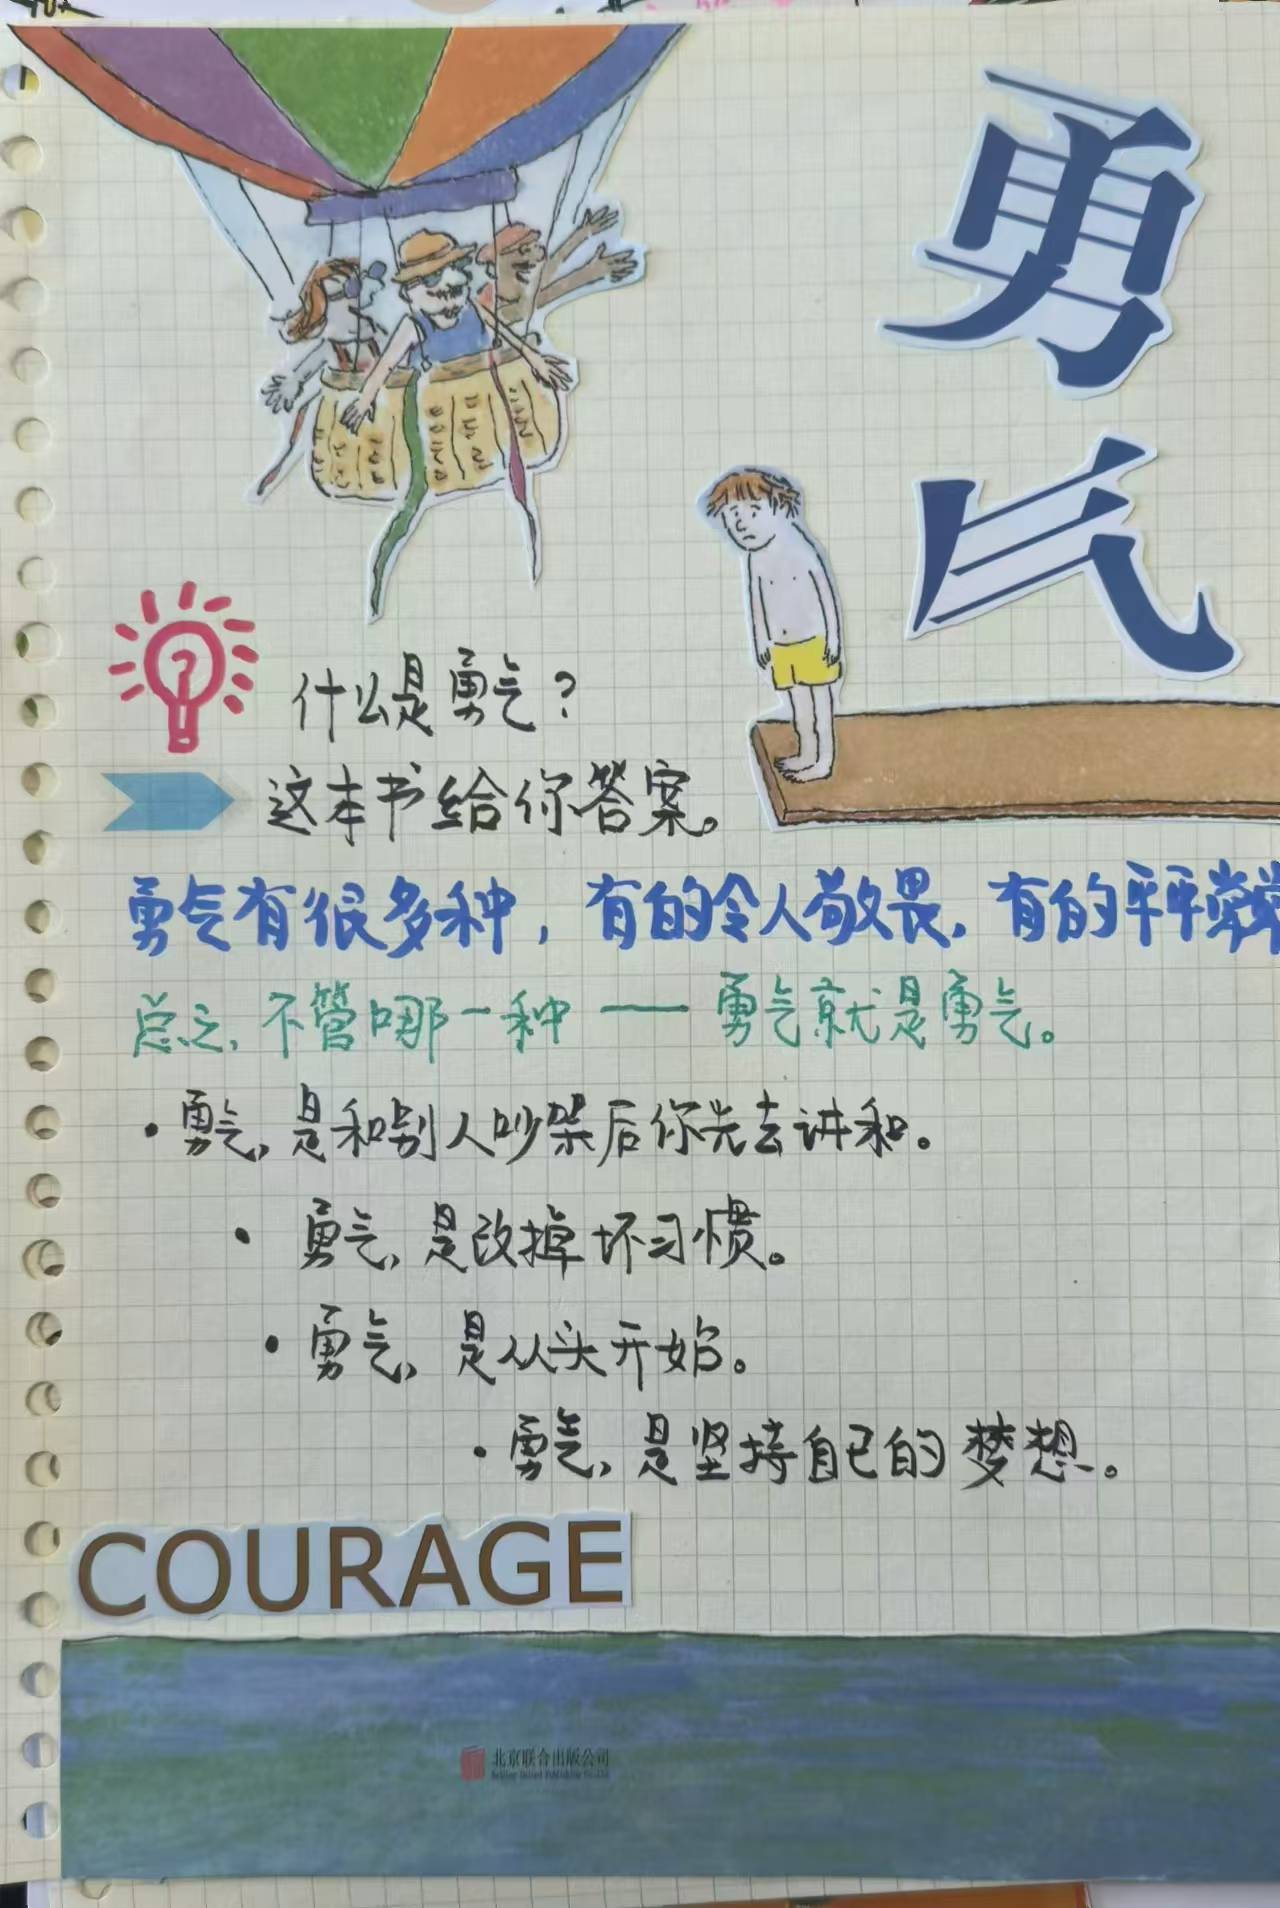 勇
气
什么是勇气？
这本书给你答案。
勇气有很多种，有的令人敬畏，有的平平常常
总之，不管哪一种——勇气就是勇气。
·勇气，是和别人吵架后你先去讲和。
·勇气，是改掉坏习惯。
·勇气，是从头开始。
·勇气，是坚持自己的梦想。
COURAGE
北京联合出版公司
Beijing United Publishing Co.,Ltd.